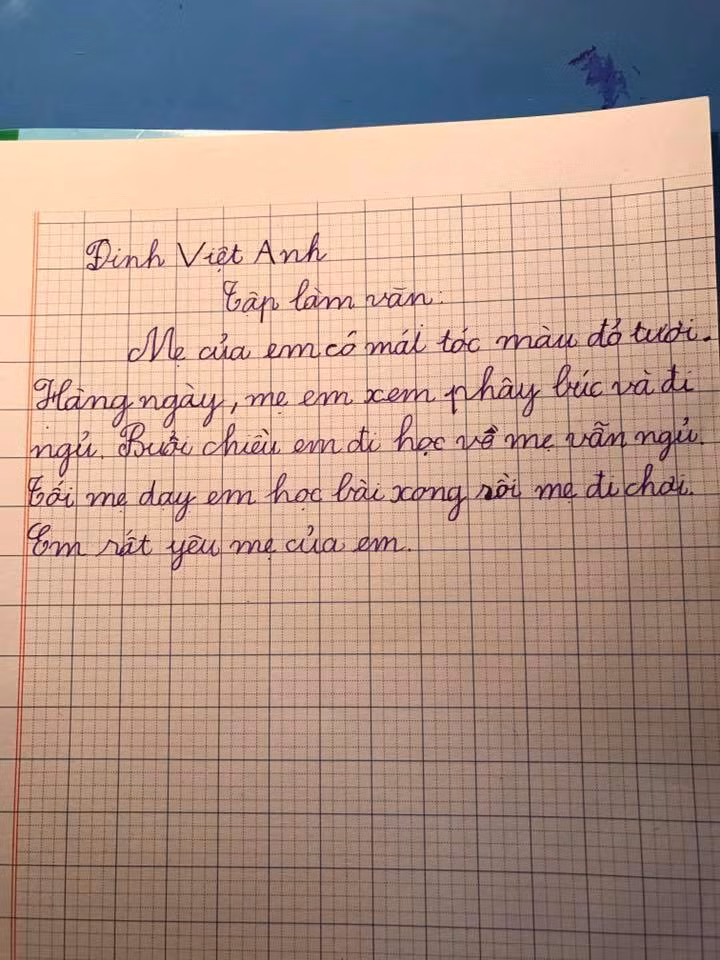 Đinh Việt Anh
Tập làm văn:
Mẹ của em có mái tóc màu đỏ tươi.
Hàng ngày, mẹ em xem phây búc và đi
ngủ. Buổi chiều em đi học về mẹ vẫn ngủ.
Tối mẹ dạy em học bài xong rồi mẹ đi chơi.
Em rất yêu mẹ của em.